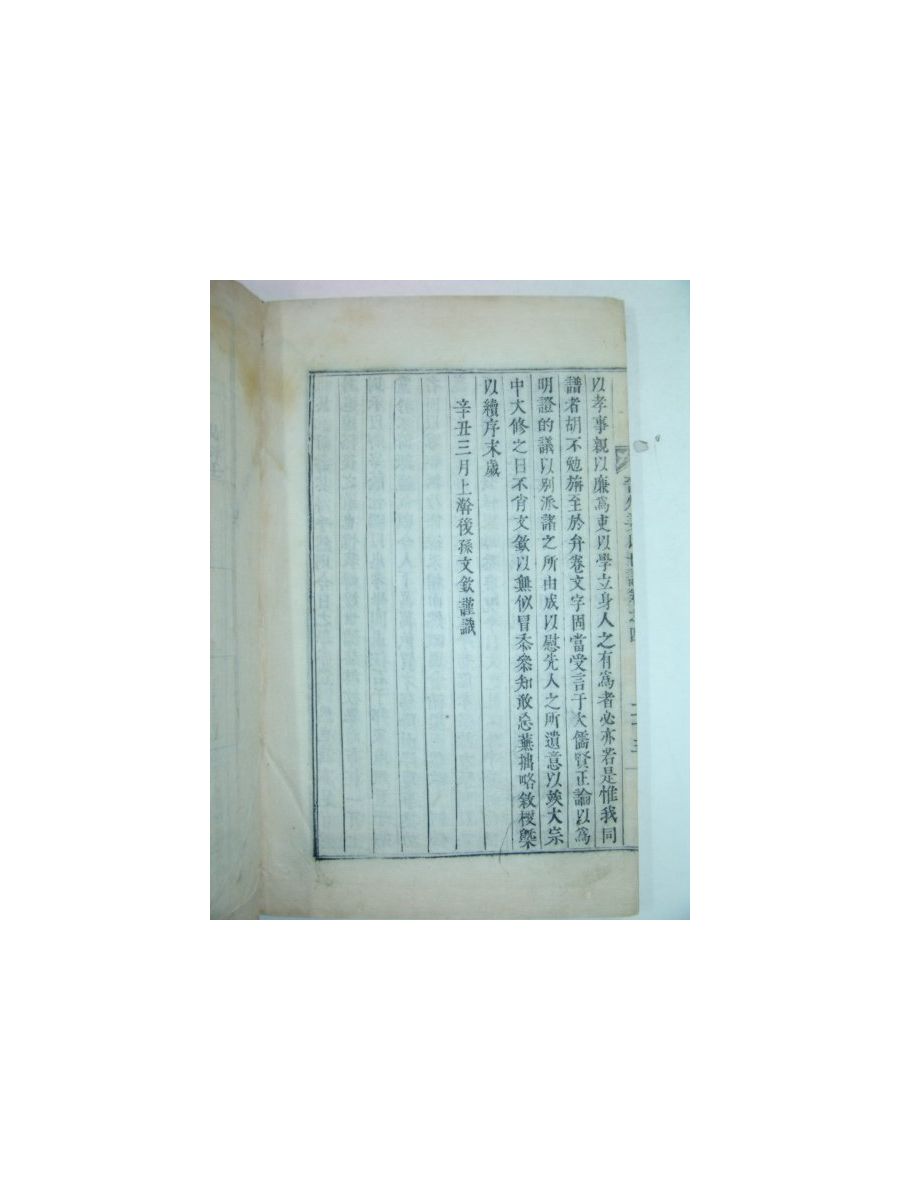 以孝事親以廉爲吏以學立身人之有爲者必亦若是惟我同
譜者胡不勉旃至於弁卷文字固當受言于大儒賢正論以爲
明證的議以別派諸之所由成以慰先人之所遺意以竢大宗
中大修之日不肖文欽以無似冒忝參知敢忘蕪拙略敘梗槩
以續序末歲
辛丑三月上澣後孫文欽謹識